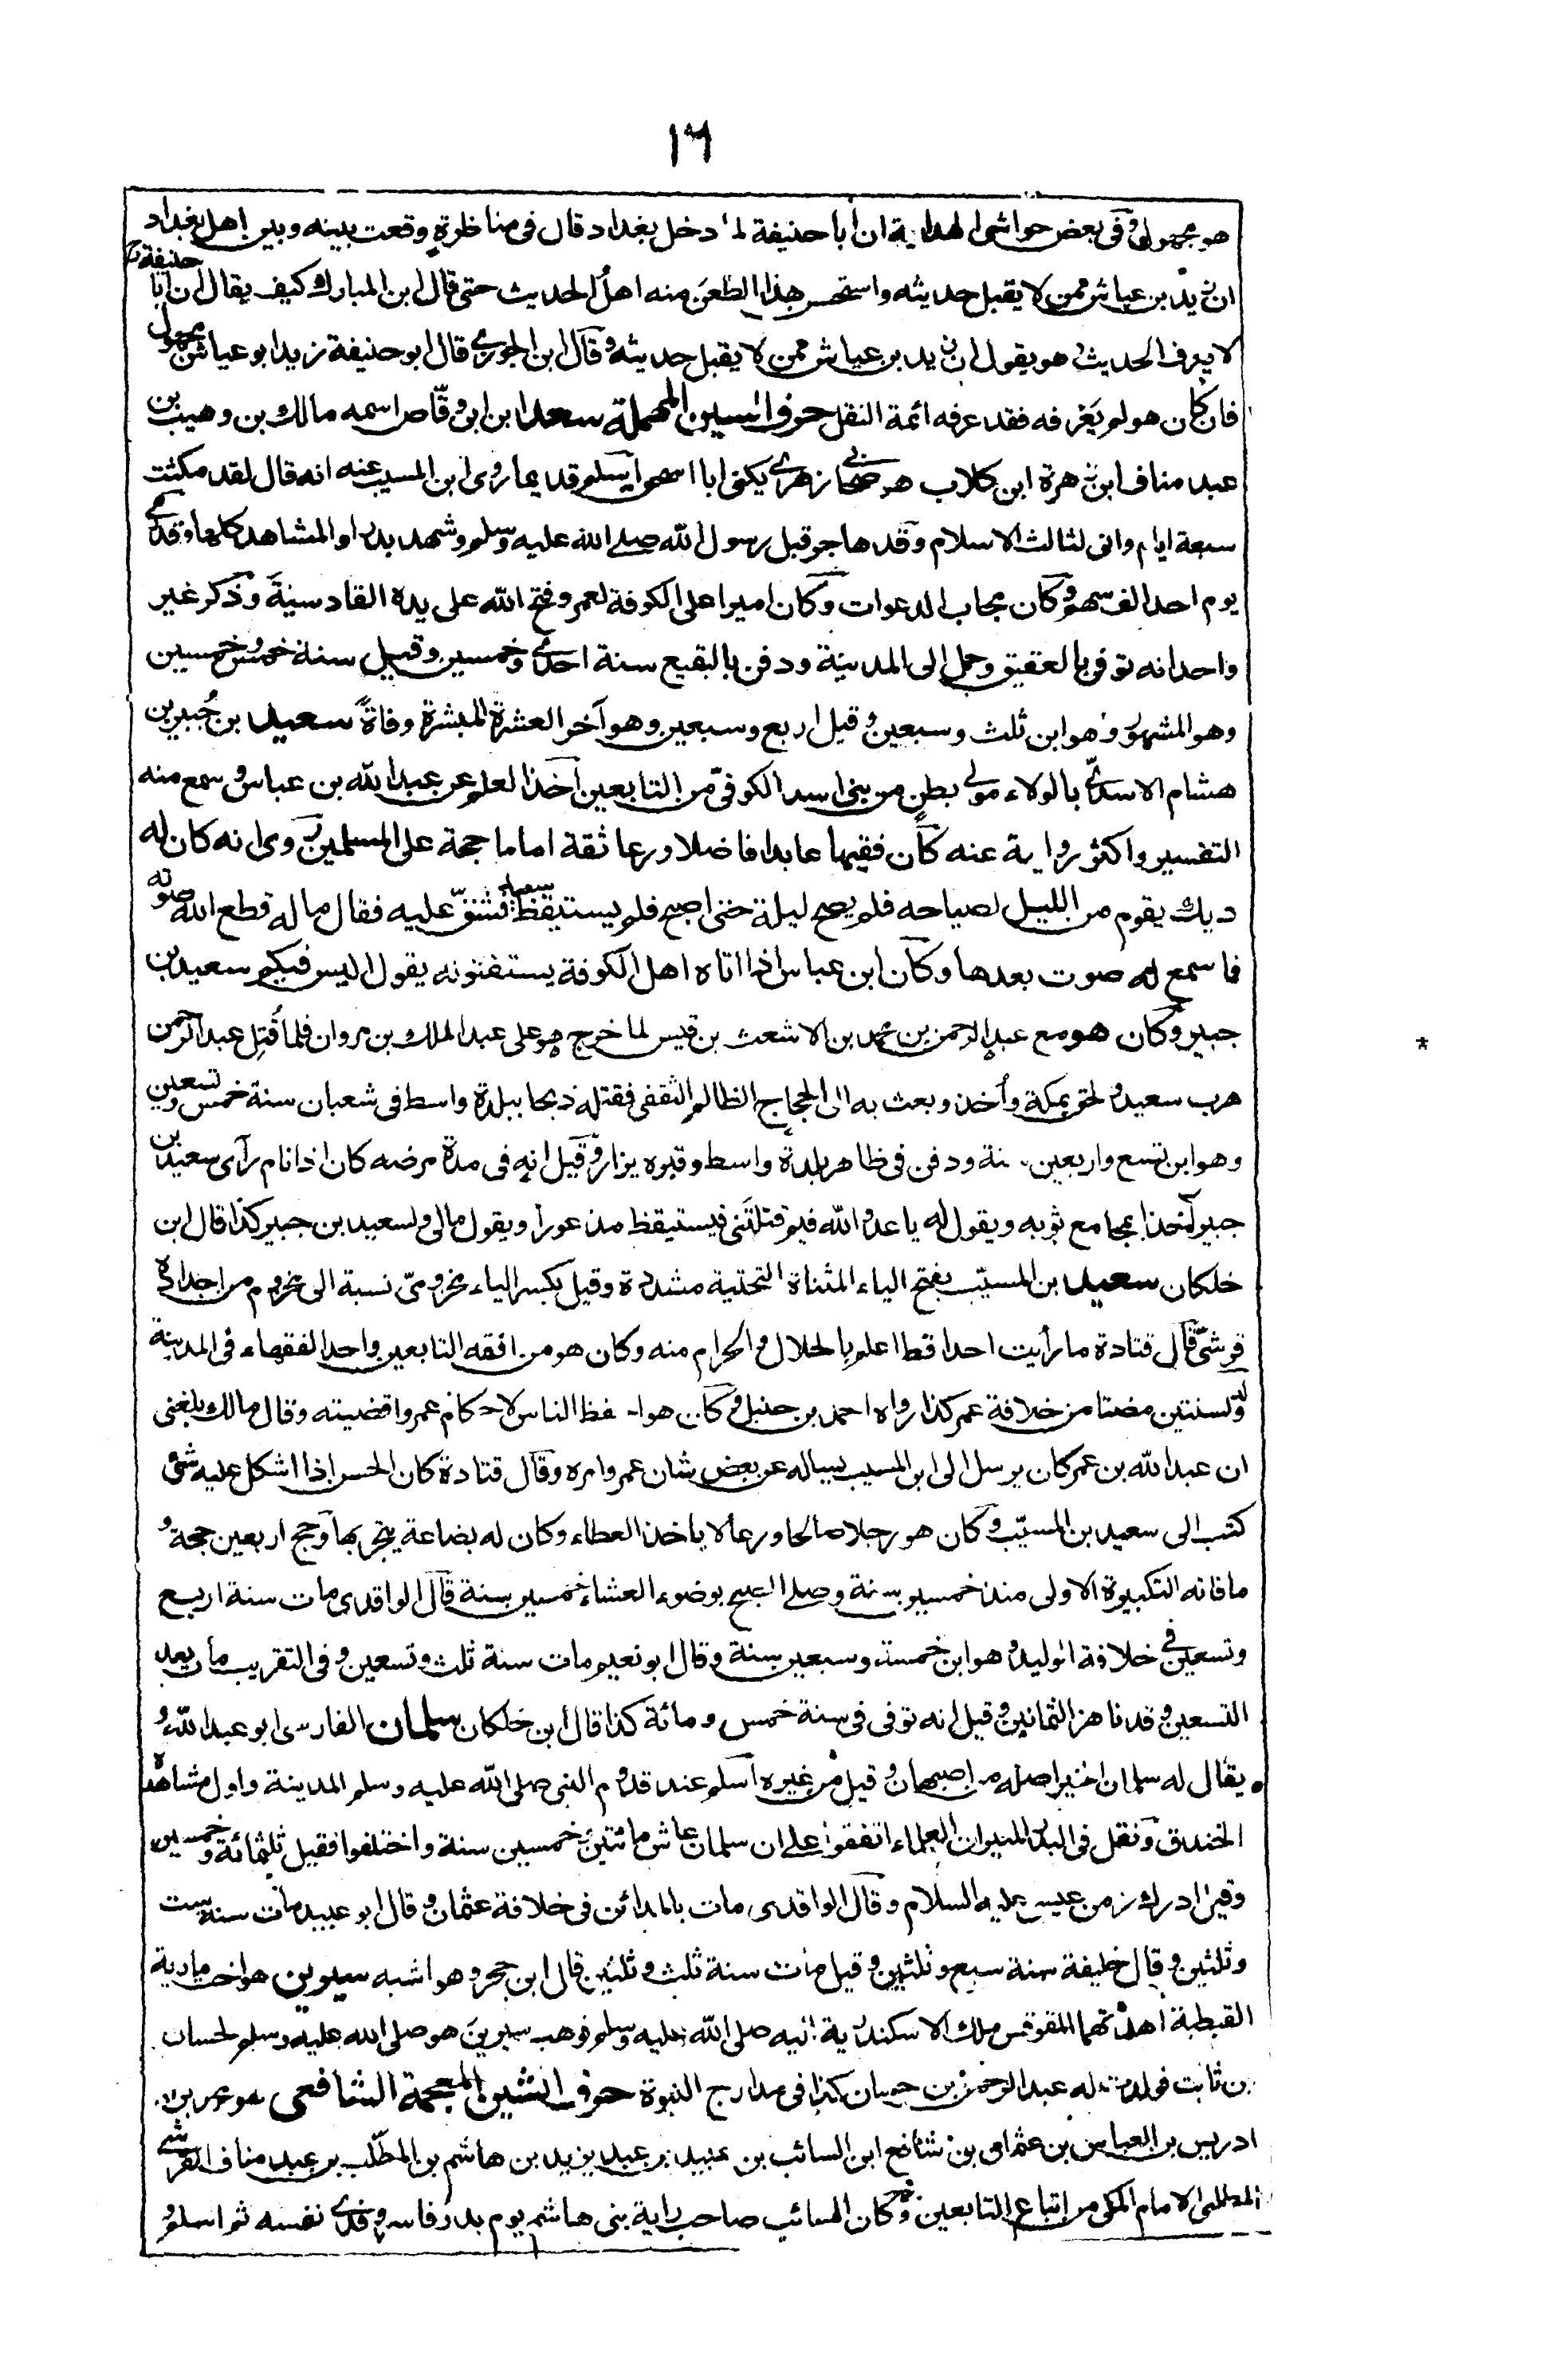 ١٦
هو مجهول وفى بعض حواشى الهداية ان ابا حنيفة لما دخل بغداد قال فى مناظرة وقعت بينه وبين اهل بغداد
ان زيد بن عياش ممن لا يقبل حديثه واستحسن هذا الطعن منه اهل الحديث حتى قال ابن المبارك كيف يقال ان ابا حنيفة
لا يعرف الحديث وهو يقول ان زيد بن عياش ممن لا يقبل حديثه وقال ابن الجوزى قال ابو حنيفة زيد ابو عياش مجهول
فان كان هو لم يعرفه فقد عرفه ائمة النقل حرف السين المهملة سعد ابن ابى وقاص اسمه مالك بن وهيب بن
عبد مناف ابن زهرة ابن كلاب هو صحابى زهرى يكنى ابا اسحق اسلم قديما روى ابن المسيب عنه انه قال لقد مكثت
سبعة ايام وانى لثالث الاسلام وقد هاجر قبل رسول الله صلى الله عليه وسلم وشهد بدرا والمشاهد كلها وقد رمى
يوم احد الف سهم وكان مجاب الدعوات وكان اميرا على الكوفة لعمر وفتح الله على يده القادسية وذكر غير
واحد انه توفى بالعقيق وحمل الى المدينة ودفن بالبقيع سنة احدى وخمسين وقيل سنة خمس وخمسين
وهو المشهور وهو ابن ثلث وسبعين وقيل اربع وسبعين وهو آخر العشرة المبشرة وفاة سعيد بن جبير بن
هشام الاسدى بالولاء مولى بطن من بنى اسد الكوفى من التابعين اخذ العلم عن عبد الله بن عباس وسمع منه
التفسير واكثر رواية عنه كان فقيها عابدا فاضلا ورعا ثقة اماما حجة على المسلمين روى انه كان له
ديك يقوم من الليل لصياحه فلم يصح ليلة حتى اصبح فلم يستيقظ سعيد فشق عليه فقال ما له قطع الله صوته
فما سمع له صوت بعدها وكان ابن عباس اذا اتاه اهل الكوفة يستفتونه يقول اليس فيكم سعيد بن
جبير وكان هو مع عبد الرحمن بن محمد بن الاشعث بن قيس لما خرج هو على عبد الملك بن مروان فلما قتل عبد الرحمن
هرب سعيد ولحق بمكة وأخذ وبعث به الى الحجاج الظالم الثقفى فقتله ذبحا ببلدة واسط فى شعبان سنة خمس وتسعين
وهو ابن تسع واربعين سنة ودفن فى ظاهر بلدة واسط وقبره يزار وقيل انه فى مدة مرضه كان اذا نام رآى سعيد بن
جبير آخذا بمجامع ثوبه ويقول له يا عدو الله فيم قتلتنى فيستيقظ مذعورا ويقول مالى ولسعيد بن جبير كذا قال ابن
خلكان سعيد بن المسيب بفتح الياء المثناة التحتية مشددة وقيل بكسر الياء مخزومى نسبة الى مخزوم من اجداده
قرشى قال قتادة ما رأيت احدا قط اعلم بالحلال والحرام منه وكان هو من افقه التابعين واحد الفقهاء فى المدينة
ولد لسنتين مضتا من خلافة عمر كذا رواه احمد بن حنبل وكان هو احفظ الناس لاحكام عمر واقضيته وقال مالك بلغنى
ان عبد الله بن عمر كان يرسل الى ابن المسيب يساله عن بعض شان عمر وامره وقال قتادة كان الحسن اذا اشكل عليه شئ
كتب الى سعيد بن المسيب وكان هو رجلا صالحا ورعا لا ياخذ العطاء وكان له بضاعة يتجر بها وحج اربعين حجة و
ما فاته التكبيرة الاولى منذ خمسين سنة وصلى الصبح بوضوء العشاء خمسين سنة قال الواقدى مات سنة اربع
وتسعين فى خلافة الوليد وهو ابن خمسة وسبعين سنة وقال ابو نعيم مات سنة ثلث وتسعين وفى التقريب مات بعد
التسعين وقد ناهز الثمانين وقيل انه توفى فى سنة خمس ومائة كذا قال ابن خلكان سلمان الفارسى ابو عبد الله و
يقال له سلمان الخير اصله من اصبهان وقيل من غيره اسلم عند قدوم النبى صلى الله عليه وسلم المدينة واول مشاهده
الخندق ونقل فى البدر المنير ان العلماء اتفقوا على ان سلمان عاش مائتين وخمسين سنة واختلفوا فقيل ثلثمائة وخمسين
وقيل ادرك زمن عيسى عليه السلام وقال الواقدى مات بالمدائن فى خلافة عثمان وقال ابو عبيد مات سنة ست
وثلثين وقال خليفة سنة سبع وثلثين وقيل مات سنة ثلث وثلثين قال ابن حجر وهو اشبه سيرين هو اخت مارية
القبطية اهداتهما المقوقس ملك الاسكندرية اليه صلى الله عليه وسلم فوهب سيرين هو صلى الله عليه وسلم لحسان
بن ثابت فولدت له عبد الرحمن بن حسان كذا فى مدارج النبوة حرف الشين المعجمة الشافعى هو محمد بن
ادريس بن العباس بن عثمان بن شافع ابن السائب بن عبيد بن عبد يزيد بن هاشم بن المطلب بن عبد مناف القرشى
المطلبى الامام المكى من اتباع التابعين وكان السائب صاحب راية بنى هاشم يوم بدر فاسر وفدى نفسه ثم اسلم و